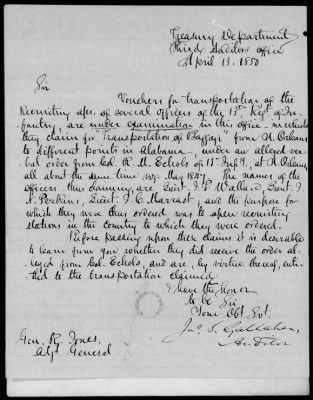 Treasury Department
Third Auditors office
April 13. 1850
Sir
Vouchers for transportation of the
Recruiting of several Officers of the 13th Regt of In-
fantry, are under examination in this office - in which
they claim for "Transportation of Baggage" from N. Orleans
to different points in Alabama - under an alleged ver-
bal order from Col. R. M. Echols of 13 Infy, at N. Orleans,
all about the same time viz. May 1847. The names of the
officers thus claiming are Lieut. Wallard, Lieut. J.
N. Perkins, Lieut. J. C. Marrast; and the purpose for
which they were thus ordered was to open recruiting
stations in the country to which they were ordered.
Before passing upon these claims it is desirable
to learn from you whether they did receive the order al-
leged from Col. Echols, and are, by virtue thereof, enti-
tled to the transportation claimed
I have the honor
to be Sir
Your Obt. Svt.
Jno. S. Gallaher,
Auditor
Gen. R. Jones,
Adjt General